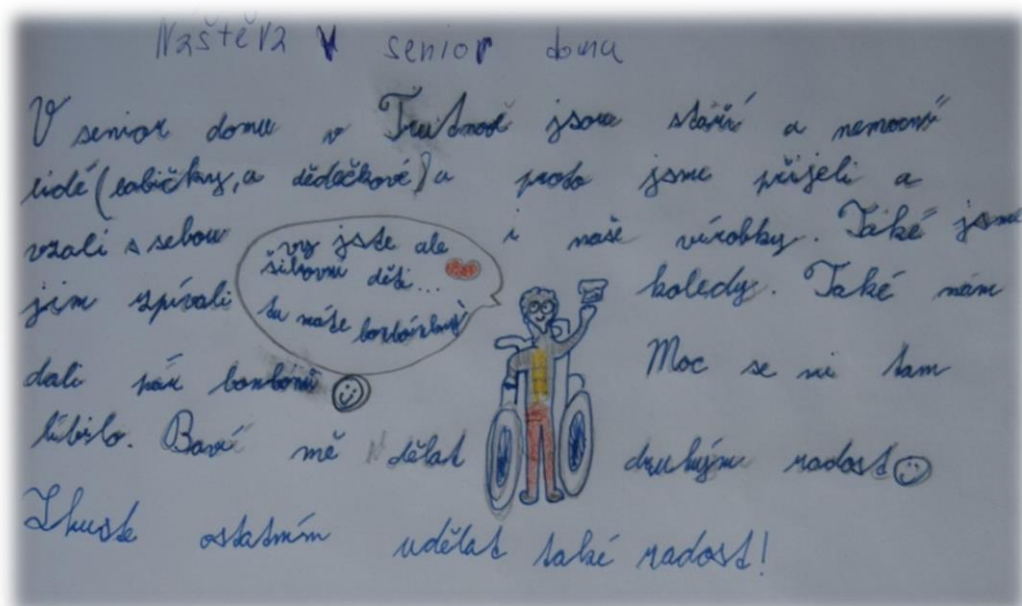 Náštěva v senior domu
V senior domu v Trutnově jsou stáří a nemocní
lidé (babičky, a dědečkové) a proto jsme přijeli a
vzali s sebou i naše výrobky. Také jsme
jim zpívali koledy. Také nám
dali pár bonbónů
Moc se mi tam
líbilo. Baví mě dělat druhým radost
Zkuste ostatním udělat také radost!
vy jste ale
šikovní děti...
tu máte bonbónky